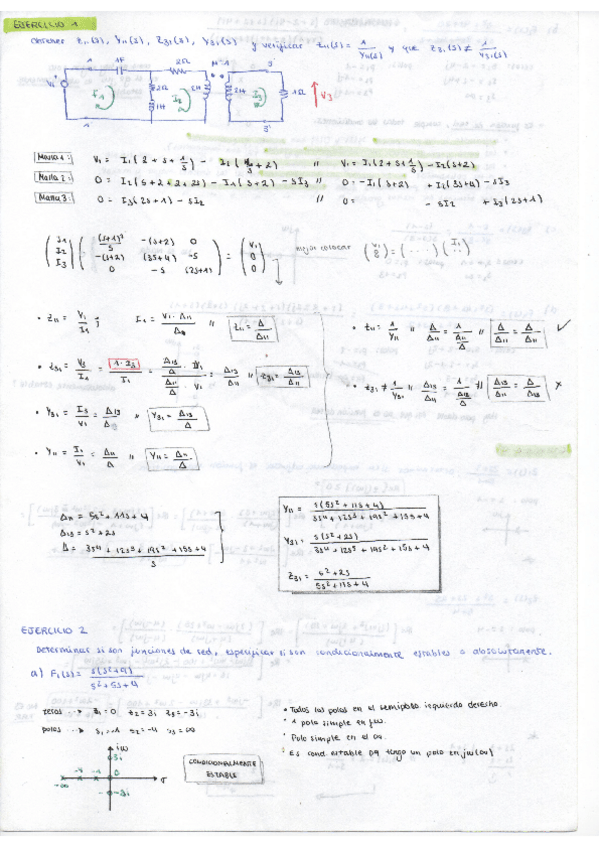 EJERCICIO 1
Obtener Z11(s), Y11(s), Z31(s), Y31(s) y verificar Z11(s) = 1/Y11(s) y que Z31(s) ≠ 1/Y31(s)
1 1F 2Ω M=1 3
V1 I1 2Ω 1H I2 2H 2H I3 1Ω V3
1' 3'
Malla 1: V1 = I1(2+s+1/s) - I2(s+2) // V1 = I1(2+s+1/s) - I2(s+2)
Malla 2: 0 = I2(s+2+2+2s) - I1(s+2) - sI3 // 0 = -I1(s+2) + I2(3s+4) - sI3
Malla 3: 0 = I3(2s+1) - sI2 // 0 = - sI2 + I3(2s+1)
(I1 I2 I3) ((s+1)²/s -(s+2) 0 -(s+2) (3s+4) -s 0 -s (2s+1)) = (V1 0 0) mejor colocar (V1 0) = (····)(I1 ··)
• Z11 = V1/I1 ; I1 = V1·Δ11/Δ // Z11 = Δ/Δ11
• Z11 = 1/Y11 // Δ/Δ11 = 1/(Δ11/Δ) // Δ/Δ11 = Δ/Δ11 ✓
• Z31 = V3/I1 = 1·I3/I1 = (Δ13/Δ · V1)/(Δ11/Δ · V1) = Δ13/Δ11 // Z31 = Δ13/Δ11
• Z31 ≠ 1/Y31 // Δ13/Δ11 = 1/(Δ13/Δ) // Δ13/Δ11 = Δ/Δ13 ×
• Y31 = I3/V1 = Δ13/Δ // Y31 = Δ13/Δ
• Y11 = I1/V1 = Δ11/Δ // Y11 = Δ11/Δ
Δ11 = 5s²+11s+4
Δ13 = s²+2s
Δ = (3s⁴+12s³+19s²+15s+4)/s
Y11 = s(5s²+11s+4)/(3s⁴+12s³+19s²+15s+4)
Y31 = s(s²+2s)/(3s⁴+12s³+19s²+15s+4)
Z31 = (s²+2s)/(5s²+11s+4)
EJERCICIO 2
Determinar si son funciones de red, especificar si son condicionalmente estables o absolutamente.
a) F1(s) = s(s²+9)/(s²+5s+4)
zeros → z1=0 z2=3i z3=-3i
polos → s1=-1 s2=-4 s3=∞
• Todos los polos en el semiplano izquierdo derecho.
• 1 polo simple en jω.
• Polo simple en el ∞.
• Es cond. estable pq tengo un polo en jω(∞)
iω 3i 0 σ -3i -∞ -4 -1
CONDICIONALMENTE ESTABLE